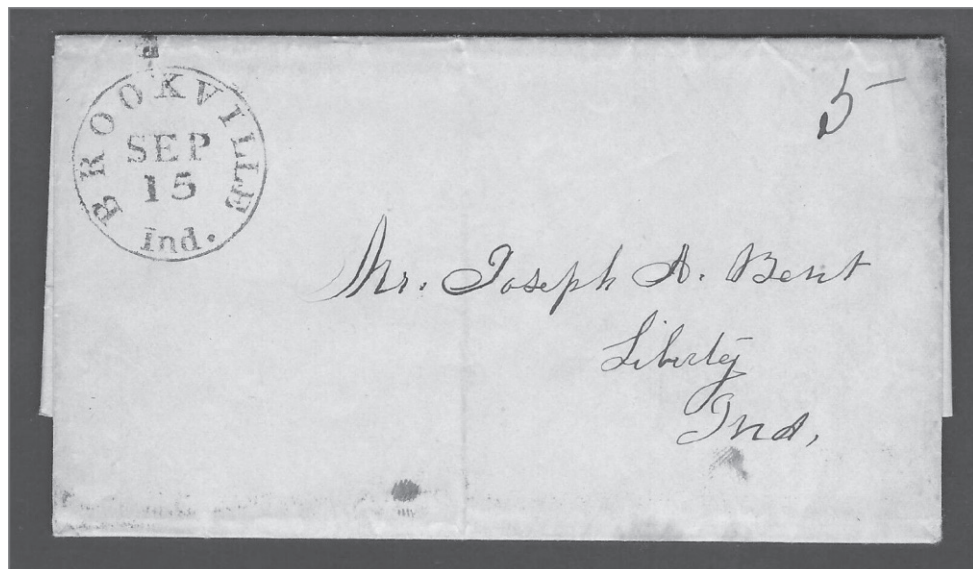 BROOKVILLE
SEP
15
Ind.
5
Mr. Joseph A. Bent
Liberty
Ind,